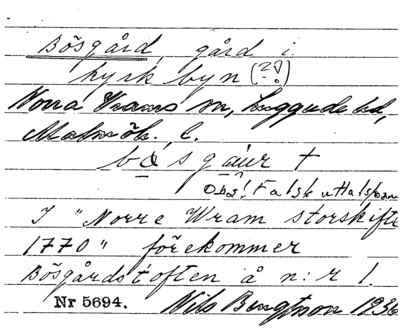 Bösgård, gård i
kyrkbyn (?!)
Norra Vrams sn, Luggude hd,
Malmöh. l.
bọ̈sgạur +
Obs! Falsk uttalsform
I "Norre Wram storskifte
1770" förekommer
Bösgårdstoften å n:r 1.
Nr 5694. Nils Bengtsson 1936